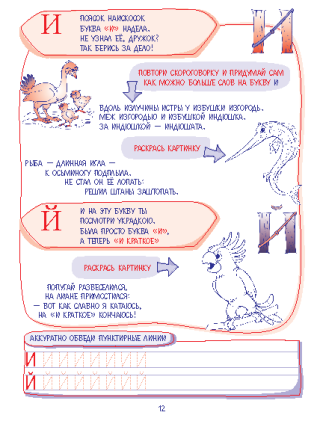 И
ПОЯСОК НАИСКОСОК
БУКВА «И» НАДЕЛА.
НЕ УЗНАЛ ЕЁ, ДРУЖОК?
ТАК БЕРИСЬ ЗА ДЕЛО!
И
ПОВТОРИ СКОРОГОВОРКУ И ПРИДУМАЙ САМ
КАК МОЖНО БОЛЬШЕ СЛОВ НА БУКВУ И
ВДОЛЬ ИЗЛУЧИНЫ ИСТРЫ У ИЗБУШКИ ИЗГОРОДЬ.
МЕЖ ИЗГОРОДЬЮ И ИЗБУШКОЙ ИНДЮШКА.
ЗА ИНДЮШКОЙ — ИНДЮШАТА.
РАСКРАСЬ КАРТИНКУ
РЫБА — ДЛИННАЯ ИГЛА —
К ОСЬМИНОГУ ПОДПЛЫЛА.
НЕ СТАЛ ОН ЕЁ ЛОПАТЬ:
РЕШИЛ ШТАНЫ ЗАШТОПАТЬ.
Й
И НА ЭТУ БУКВУ ТЫ
ПОСМОТРИ УКРАДКОЮ.
БЫЛА ПРОСТО БУКВА «И»,
А ТЕПЕРЬ «И КРАТКОЕ»
Й
РАСКРАСЬ КАРТИНКУ
ПОПУГАЙ РАЗВЕСЕЛИЛСЯ,
НА ЛИАНЕ ПРИМОСТИЛСЯ:
— ВОТ КАК СЛАВНО Я КАТАЮСЬ,
НА «И КРАТКОЕ» КОНЧАЮСЬ!
АККУРАТНО ОБВЕДИ ПУНКТИРНЫЕ ЛИНИИ
И И И И И И И И И
Й Й Й Й Й Й Й Й Й
12